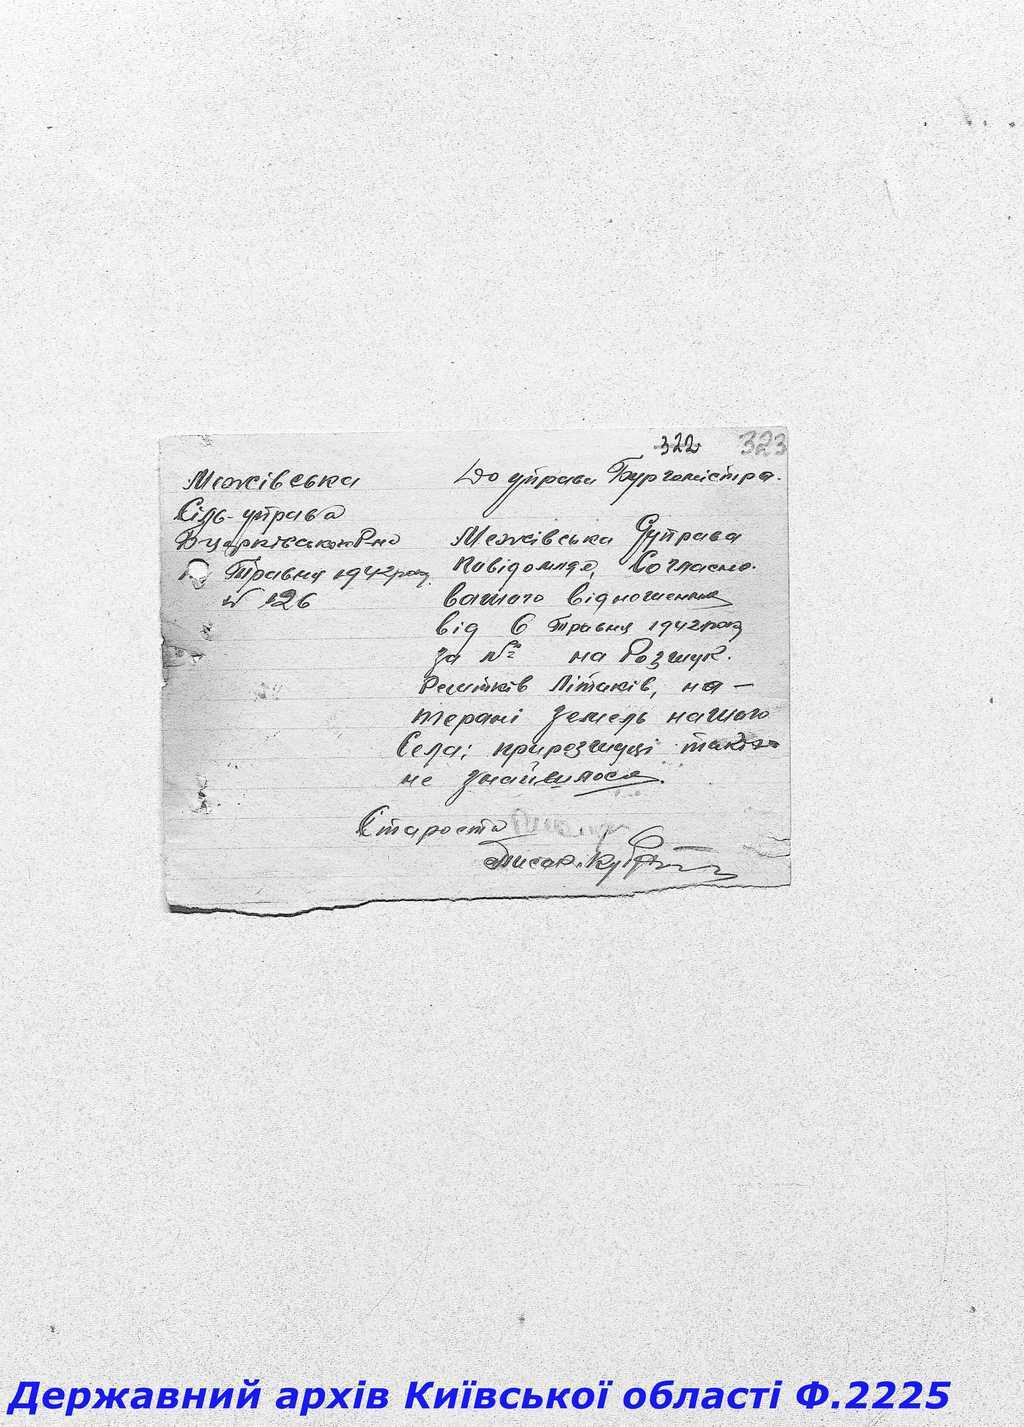 322 323
Межівська
Сіль-управа
Б церківського Р-на
Травня 1942 року
№ 126
До управи Бургомістра.
Межівська С/управа
повідомляє, Согласно.
вашого відношення
від 6 Травня 1942 року
за № на Розшук.
Решитків Літаків, на-
терані земель нашого
Села; при розшуці
не знайшлося.
Староста
Писар.
Державний архів Київської області Ф.2225